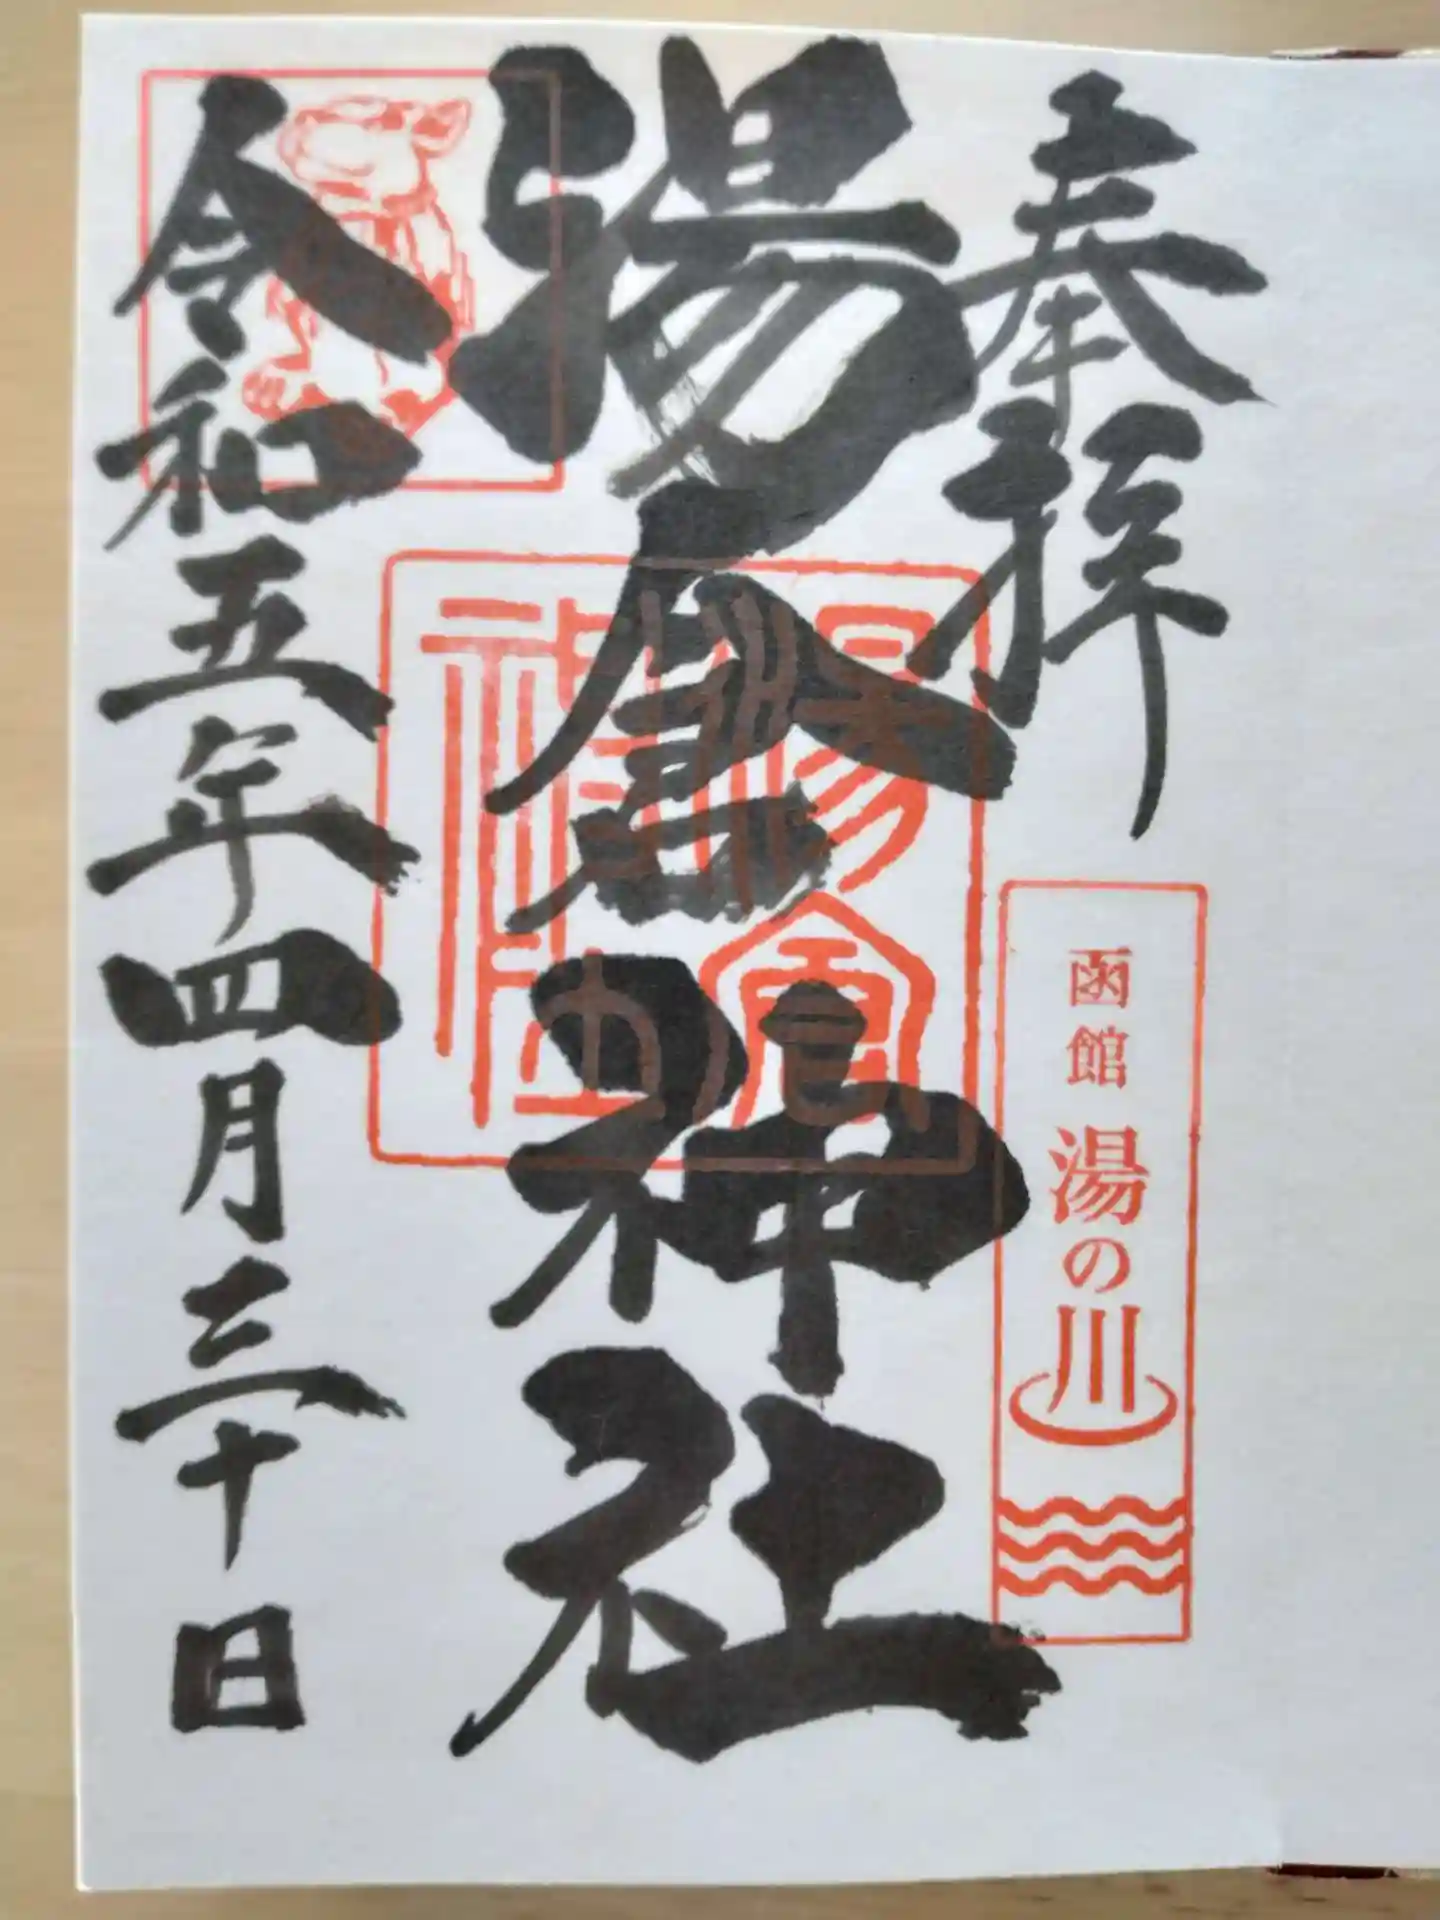 奉拝
函館 湯の川
湯倉神社
湯倉神社
令和五年四月三十日